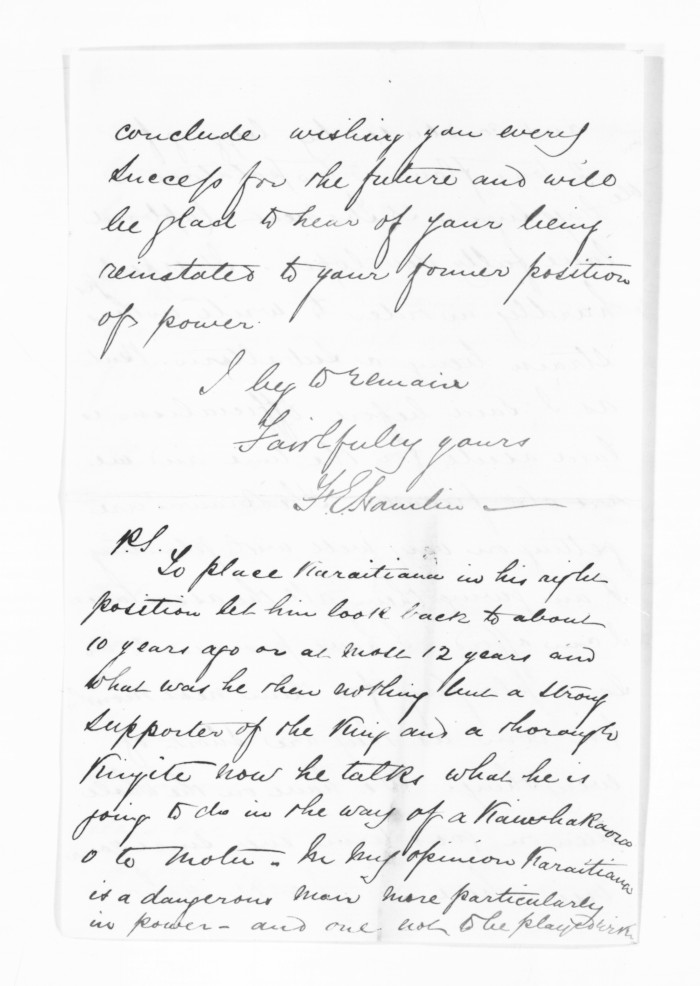 conclude wishing you every
success for the future and will
be glad to hear of your being
reinstated to your former position
of power.
I beg to remain
Faithfully yours
F. E. Hamlin
P.S.
To place Karaitiana in his right
position let him look back to about
10 years ago or at most 12 years and
what was he then nothing but a strong
supporter of the King and a thorough
Kingite now he talks what he is
going to do in the way of a Kaiwhakaora
o te Motu - In my opinion Karaitiana
is a dangerous man more particularly
in power - and one not to be played with